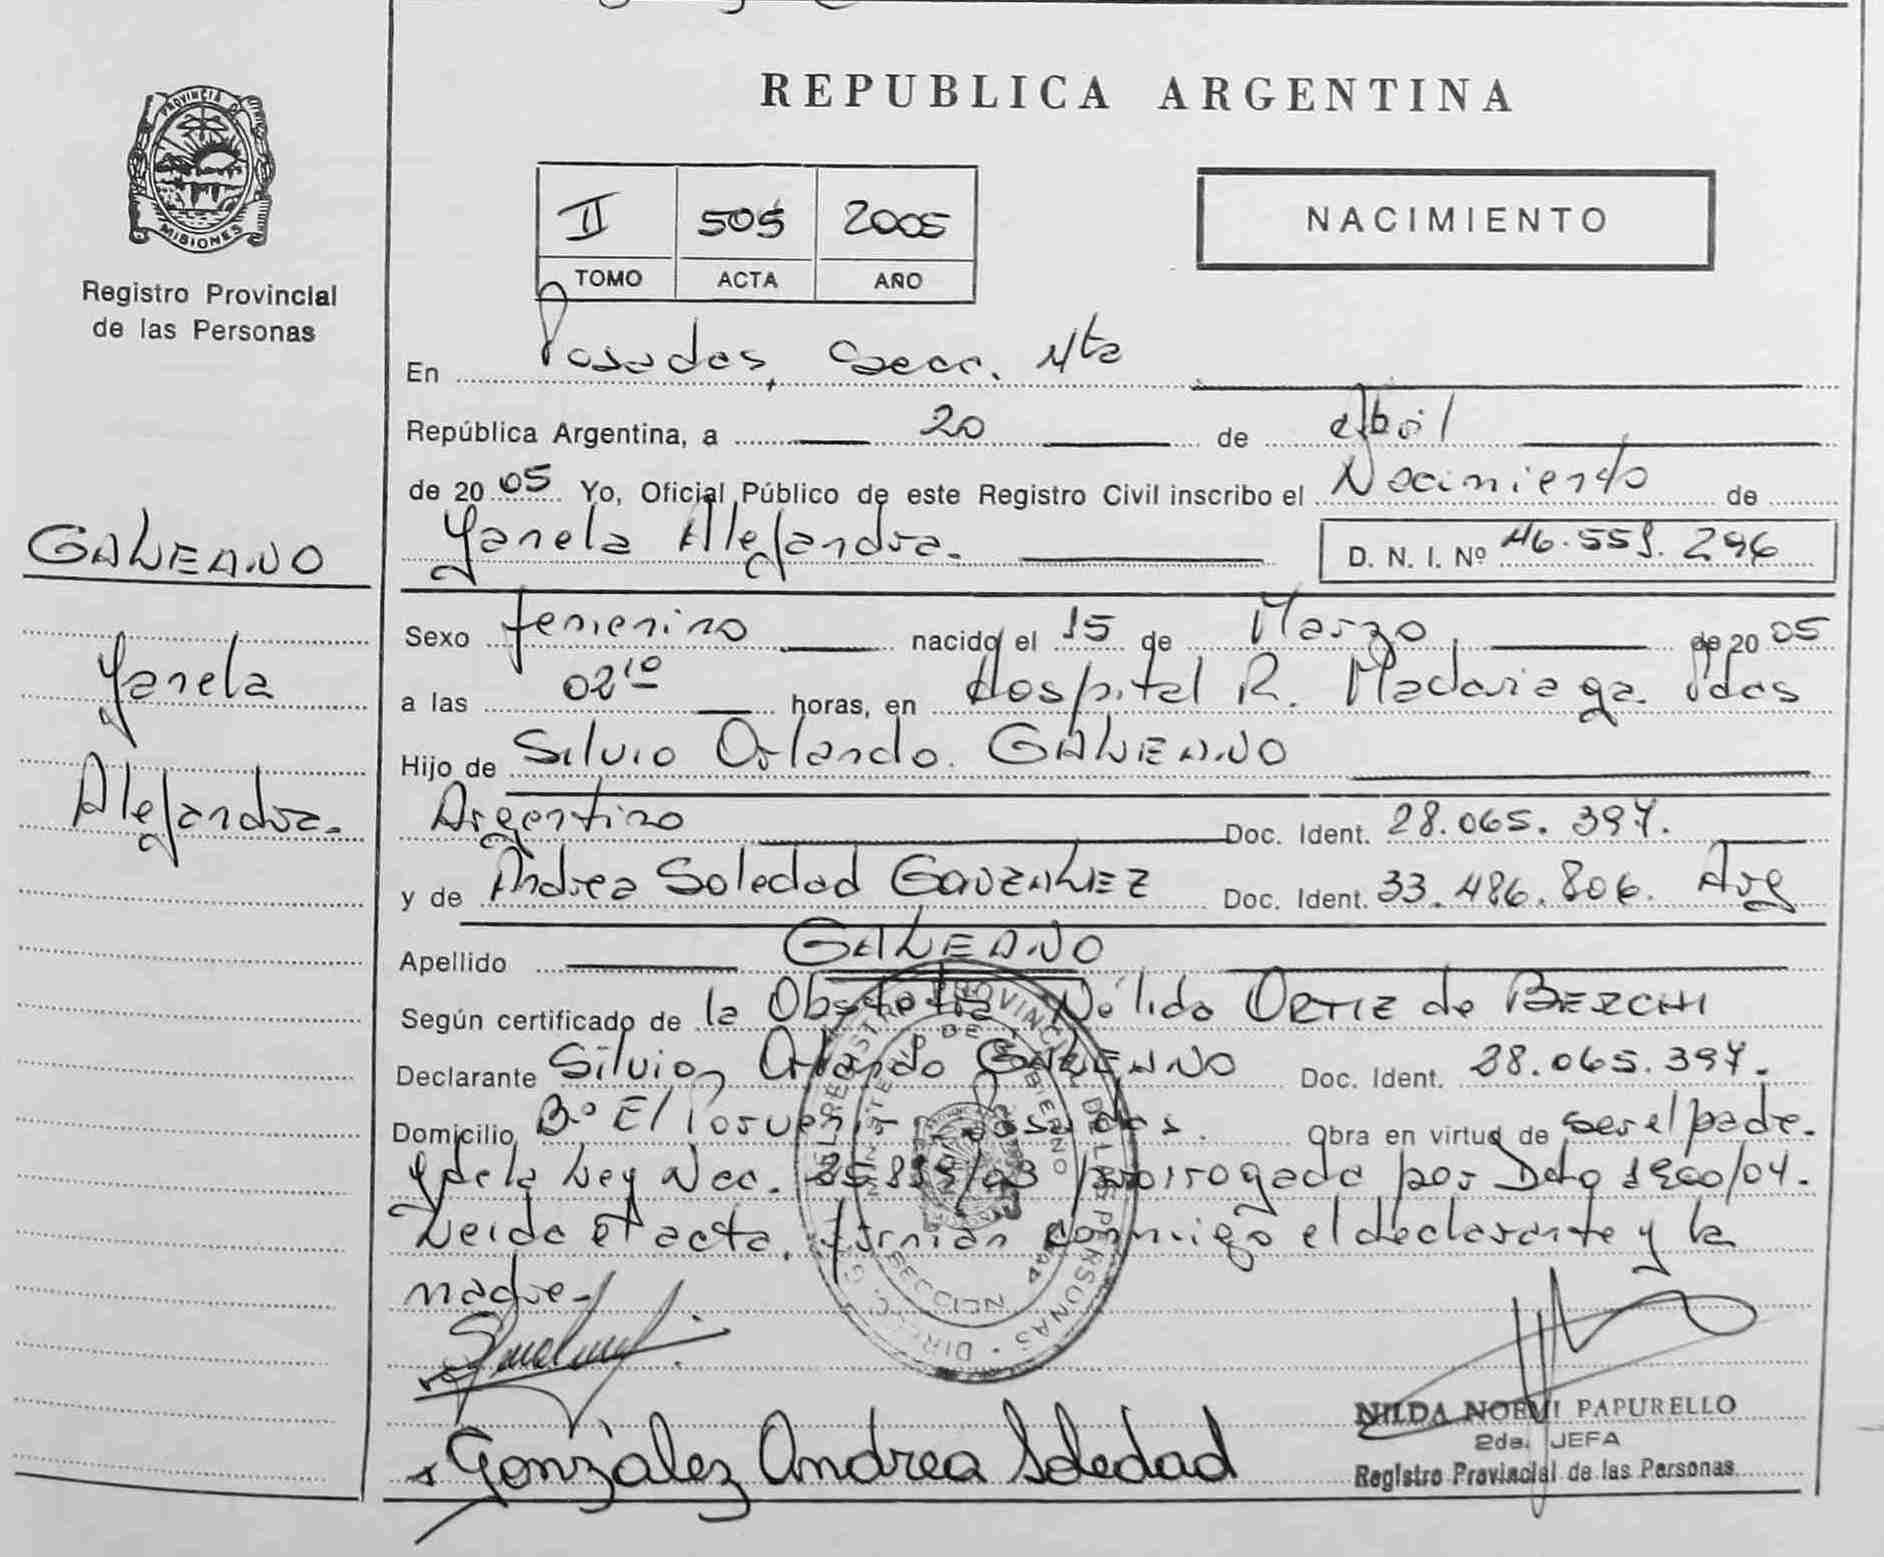 PROVINCIA DE
MISIONES
Registro Provincial
de las Personas
GALEANO
Yanela
Alejandra.
REPUBLICA ARGENTINA
II 505 2005
TOMO ACTA AÑO
NACIMIENTO
En Posadas, Secc. 4ta
República Argentina, a 20 de Abril
de 2005 Yo, Oficial Público de este Registro Civil inscribo el Nacimiento de
Yanela Alejandra. D. N. I. Nº 46.559.296
Sexo femenino nacido el 15 de Marzo de 2005
a las 02¹⁰ horas, en Hospital R. Madariaga. Pdas
Hijo de Silvio Orlando GALEANO
Argentino Doc. Ident. 28.065.397.
y de Andrea Soledad GONZALEZ Doc. Ident. 33.486.806. Arg
Apellido GALEANO
Según certificado de la Obstetra Nélida ORTIZ de BERCHI
Declarante Silvio Orlando GALEANO Doc. Ident. 28.065.397.
Domicilio Bº El Porvenir Posadas. Obra en virtud de ser el padre.
y de la Ley Nac. 25.819/03 prorrogada por Dcto 1900/04.
Leida el acta, firman conmigo el declarante y la
madre-
González Andrea Soledad
NILDA NOEMI PAPURELLO
2da. JEFA
Registro Provincial de las Personas